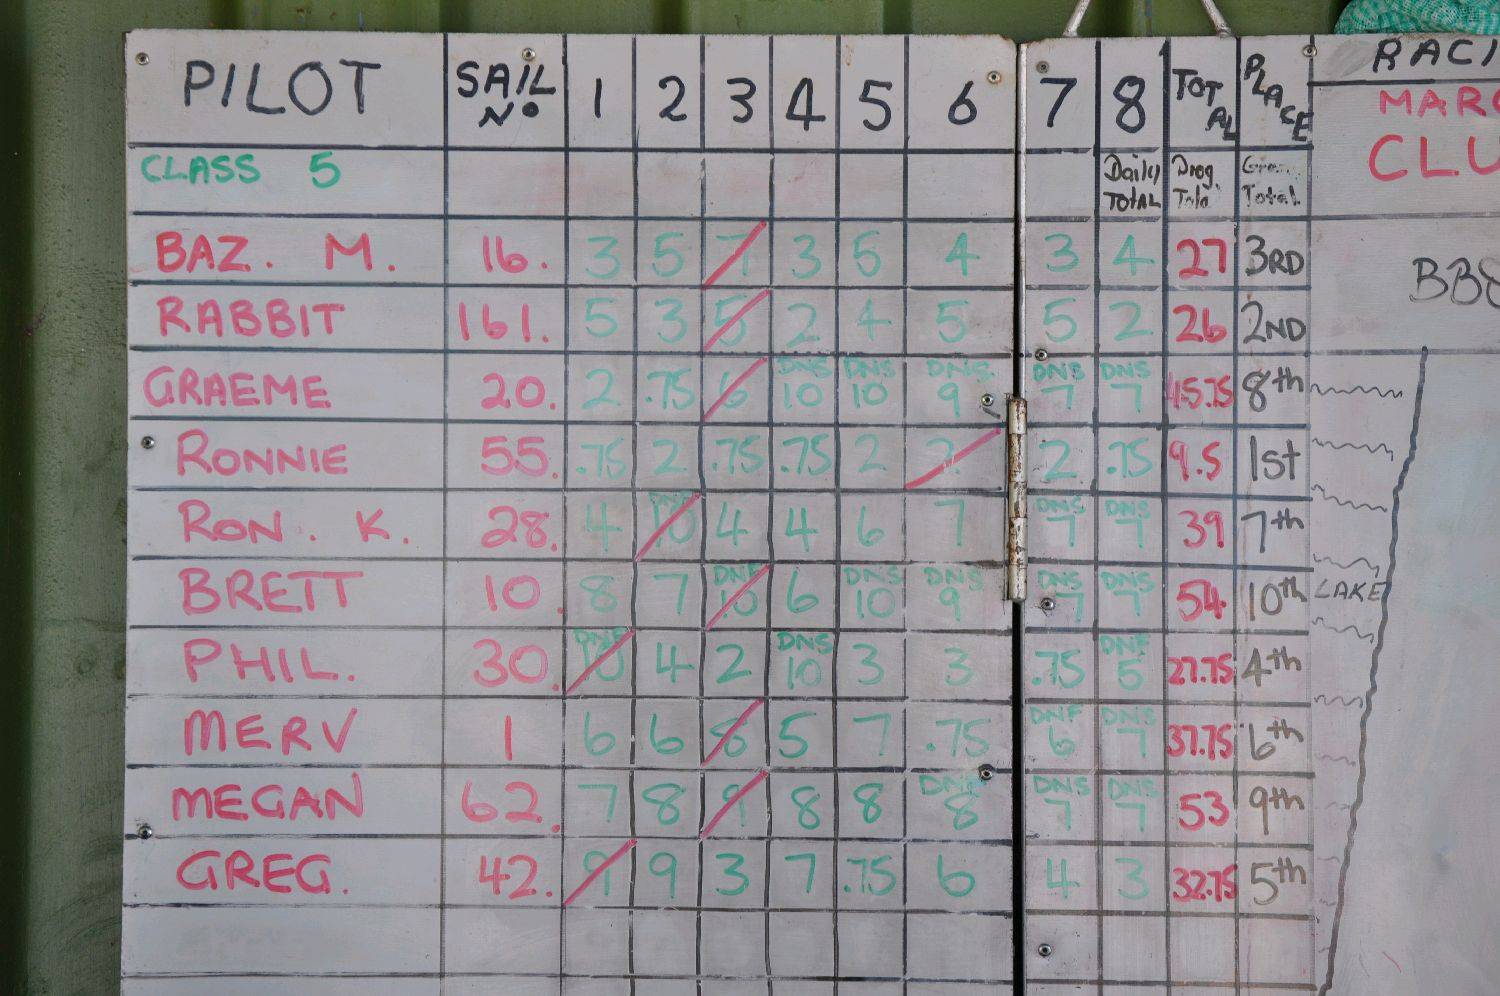 PILOT SAIL Nº 1 2 3 4 5 6 7 8 TOTAL PLACE RACI
MARC
CLASS 5 Daily TOTAL Prog. Total CLU
BAZ. M. 16. 3 5 7 3 5 4 3 4 27 3RD
RABBIT 161. 5 3 5 2 4 5 5 2 26 2ND BB8
GRAEME 20. 2 .75 6 DNS 10 DNS 10 DNS. 9 DNS 7 DNS 7 45.75 8th
RONNIE 55. .75 2 .75 .75 2 2 2 .75 9.5 1st
RON. K. 28. 4 DNF 10 4 4 6 7 DNS 7 DNS 7 39 7th
BRETT 10. 8 7 DNF 10 6 DNS 10 DNS 9 DNS 7 DNS 7 54 10th LAKE
PHIL. 30. DNF 10 4 2 DNS 10 3 3 .75 DNF 5 27.75 4th
MERV 1 6 6 8 5 7 .75 DNF 6 DNS 7 37.75 6th
MEGAN 62. 7 8 9 8 8 DNF 8 DNS 7 DNS 7 53 9th
GREG. 42. 9 9 3 7 .75 6 4 3 32.75 5th